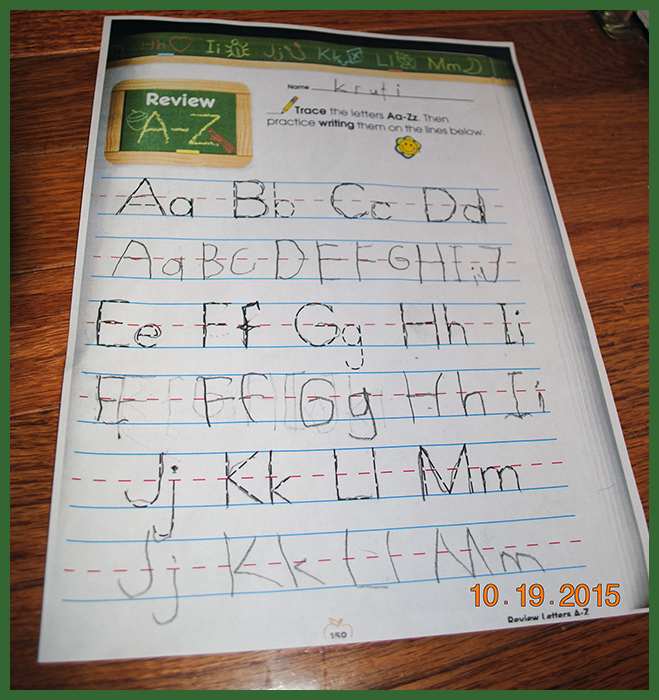 Hh Ii Jj Kk Ll Mm
Name Kruti
Review
A-Z
Trace the letters Aa-Zz. Then
practice writing them on the lines below.
Aa Bb Cc Dd
Aa B C D E F G H I i J
Ee Ff Gg Hh Ii
E Ff Gg Hh Ii
Jj Kk Ll Mm
Jj Kk Ll Mm
10.19.2015
Review Letters A-Z
150